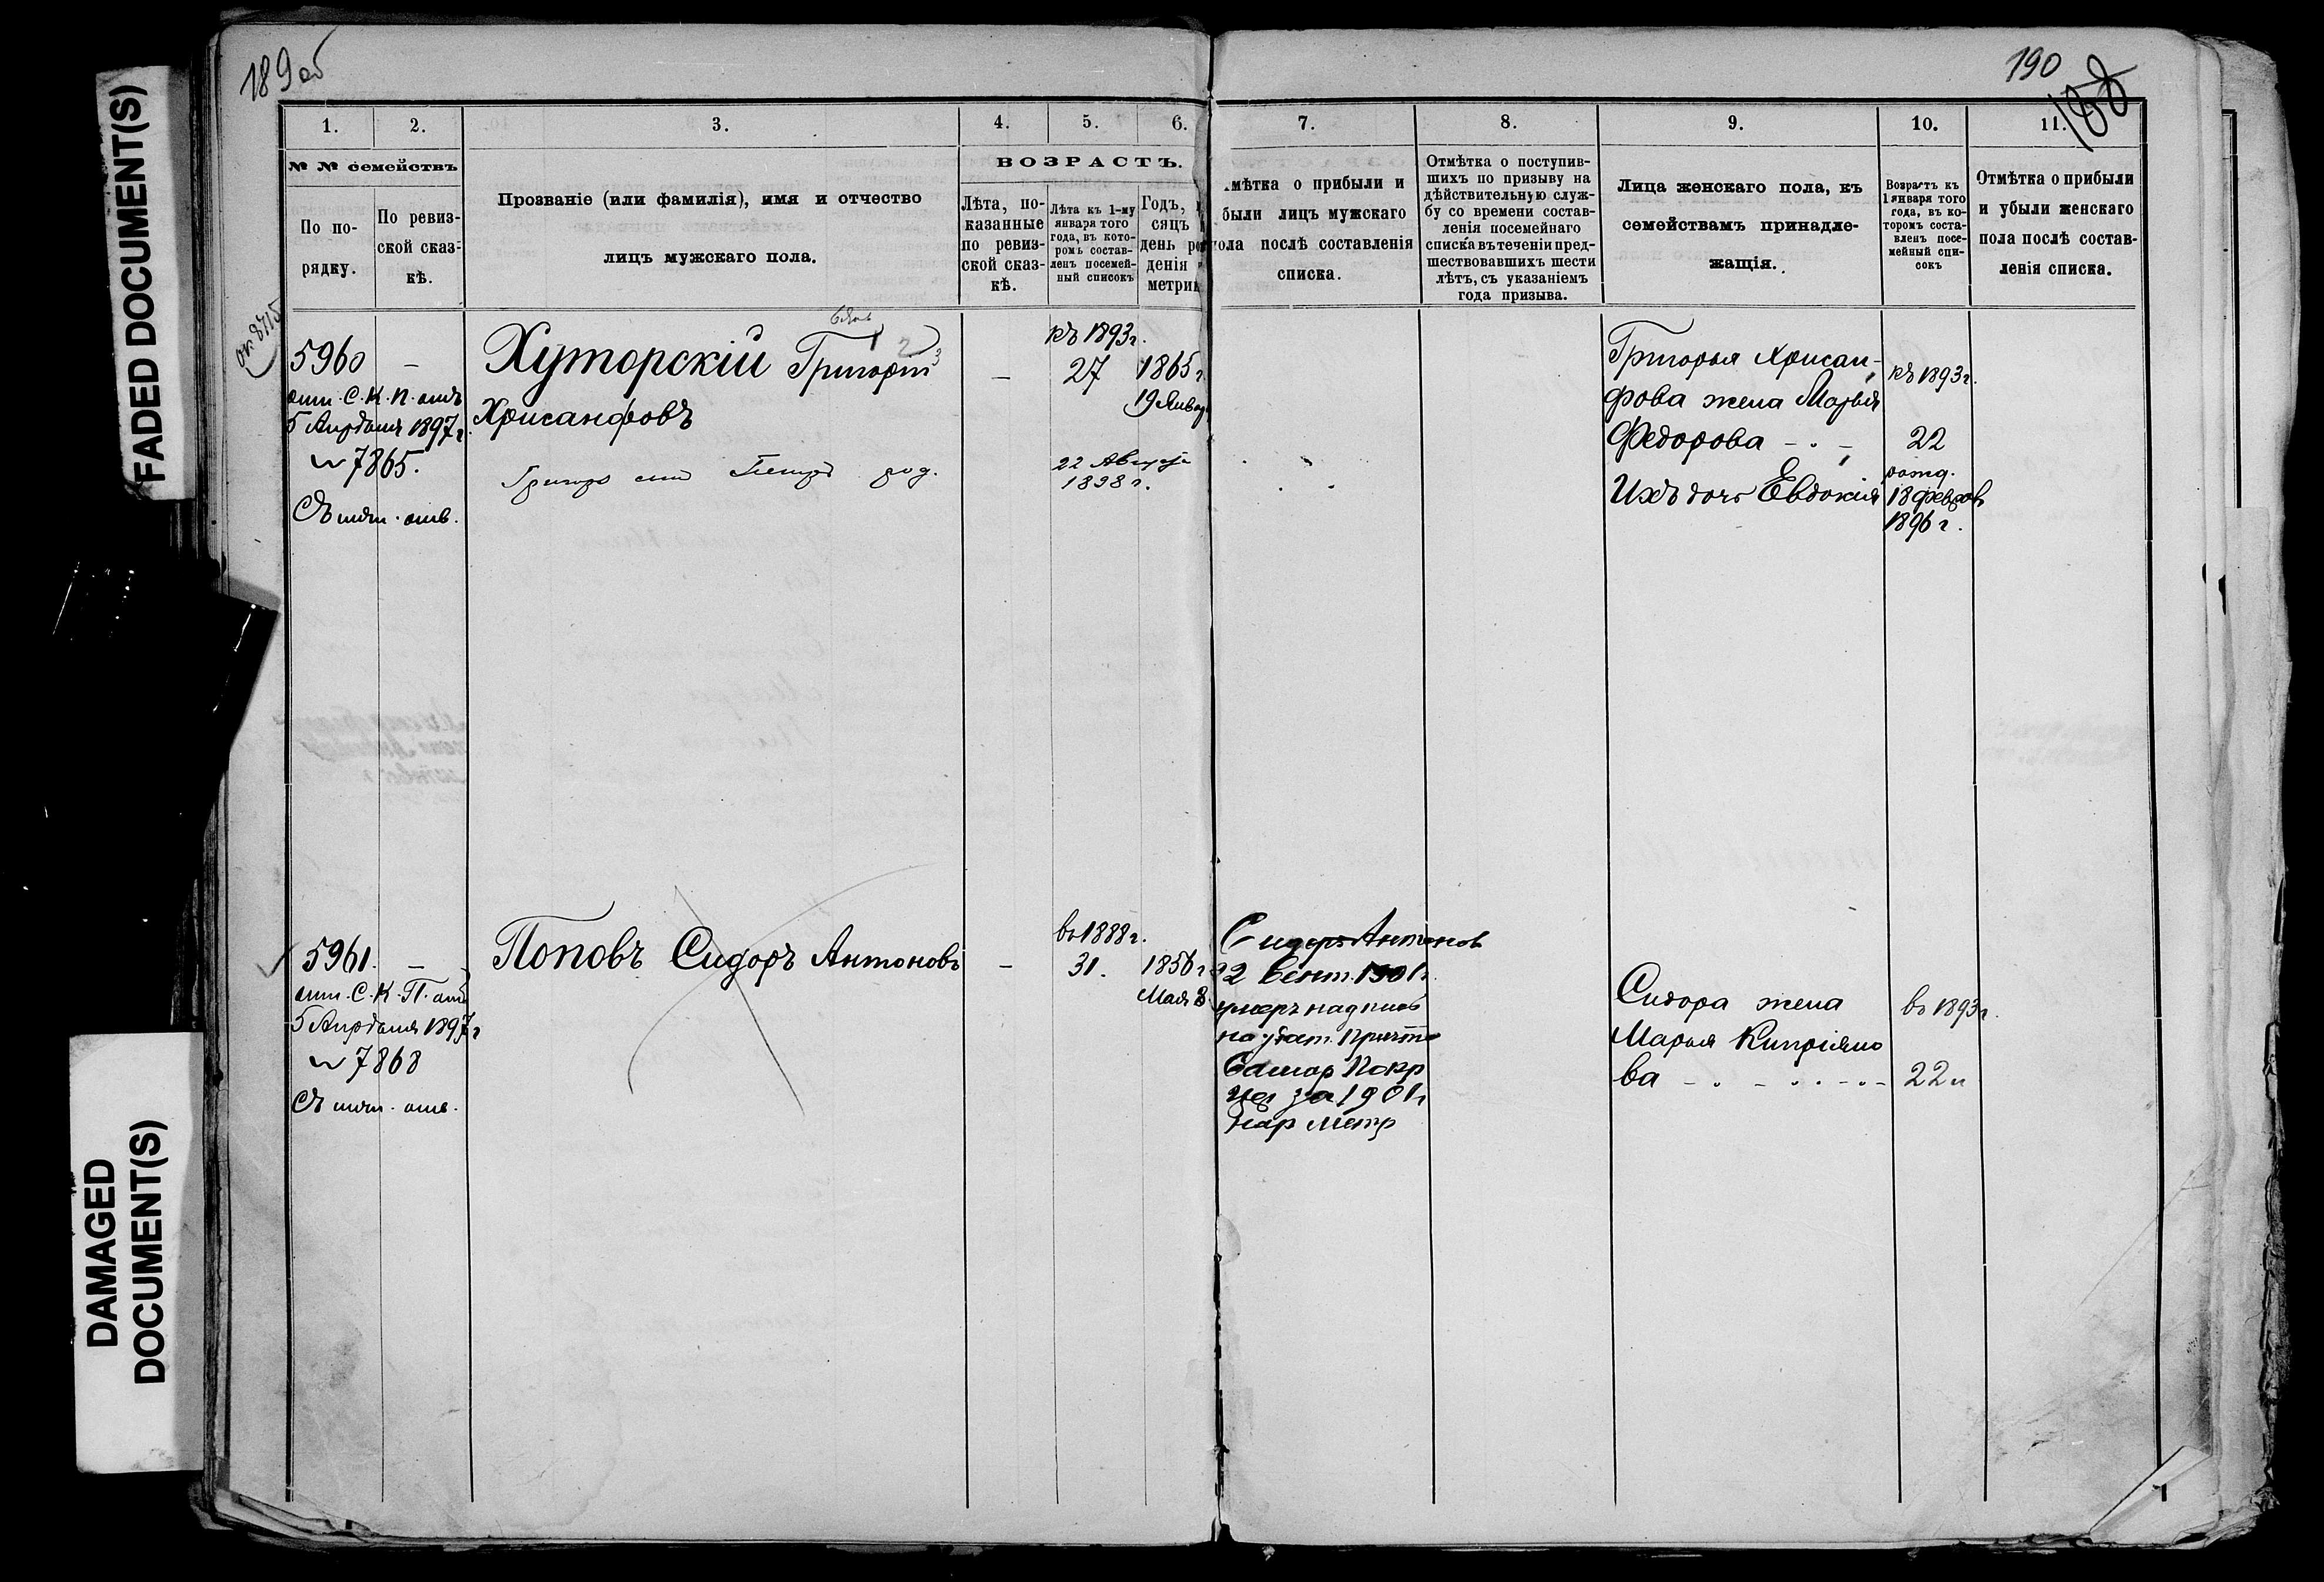 FADED DOCUMENT(S)
DAMAGED
DOCUMENT(S)
189об
190
188
1.
2.
3.
4.
5.
6.
7.
8.
9.
10.
11.
№ № семействъ
По по-
рядку.
По ревиз-
ской сказ-
кѣ.
Прозваніе (или фамилія), имя и отчество
лицъ мужскаго пола.
ВОЗРАСТЪ.
Лѣта, по-
казанные
по ревиз-
ской сказ-
кѣ.
Лѣта къ 1-му
января того
года, въ кото-
ромъ состав-
ленъ посемей-
ный списокъ
Годъ,
сяцъ
день ро
денія
метрик
мѣтка о прибыли и
были лицъ мужскаго
пола послѣ составленія
списка.
Отмѣтка о поступив-
шихъ по призыву на
дѣйствительную служ-
бу со времени состав-
ленія посемейнаго
списка въ теченіи пред-
шествовавшихъ шести
лѣтъ, съ указаніемъ
года призыва.
Лица женскаго пола, къ
семействамъ принадле-
жащія.
Возрастъ къ
1 января того
года, въ ко-
торомъ соста-
вленъ посе-
мейный спи-
сокъ
Отмѣтка о прибыли
и убыли женскаго
пола послѣ состав-
ленія списка.
5960 –
отн. С. К. П. отъ
5 Апрѣля 1897 г.
№ 7865.
Хуторскій Григорій
Хрисанфовъ
–
къ 1893 г.
27
1865 г.
19 Январ
22 Августа
1898 г.
Григорья Хрисан-
фова жена Марья
Федорова
къ 1893 г.
22
Ихъ дочь Евдокія
рожд.
18 февраля
1896 г.
5961. –
отн. С. К. П. отъ
5 Апрѣля 1897 г
№ 7868
Поповъ Сидоръ Антоновъ
–
въ 1888 г.
31.
1856 г
Мая 8
Сидоръ Антонов
22 Сент. 1901 г.
умеръ надпись
Покр
за 1901 г
Метр
Сидора жена
Марья Кипріяно
ва
въ 1893 г.
22